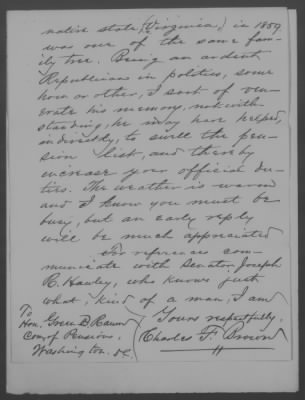 native state, (Virginia,) in 1859
was one of the same fam-
ily tree. Being an ardent
Republican in politics, some
how or other, I sort of ven-
erate his memory, notwith-
standing, he may have helped,
indirectly, to swell the pen-
sion list, and thereby
increase your official du-
ties. The weather is warm
and I know you must be
busy, but an early reply
will be much appreciated
For references com-
municate with Senator Joseph
R. Hawley, who knows just
what, kind of a man, I am
Yours respectfully,
Charles F. Brown
To
Hon. Green B. Raum
Com, of Pensions,
Washington. DC.